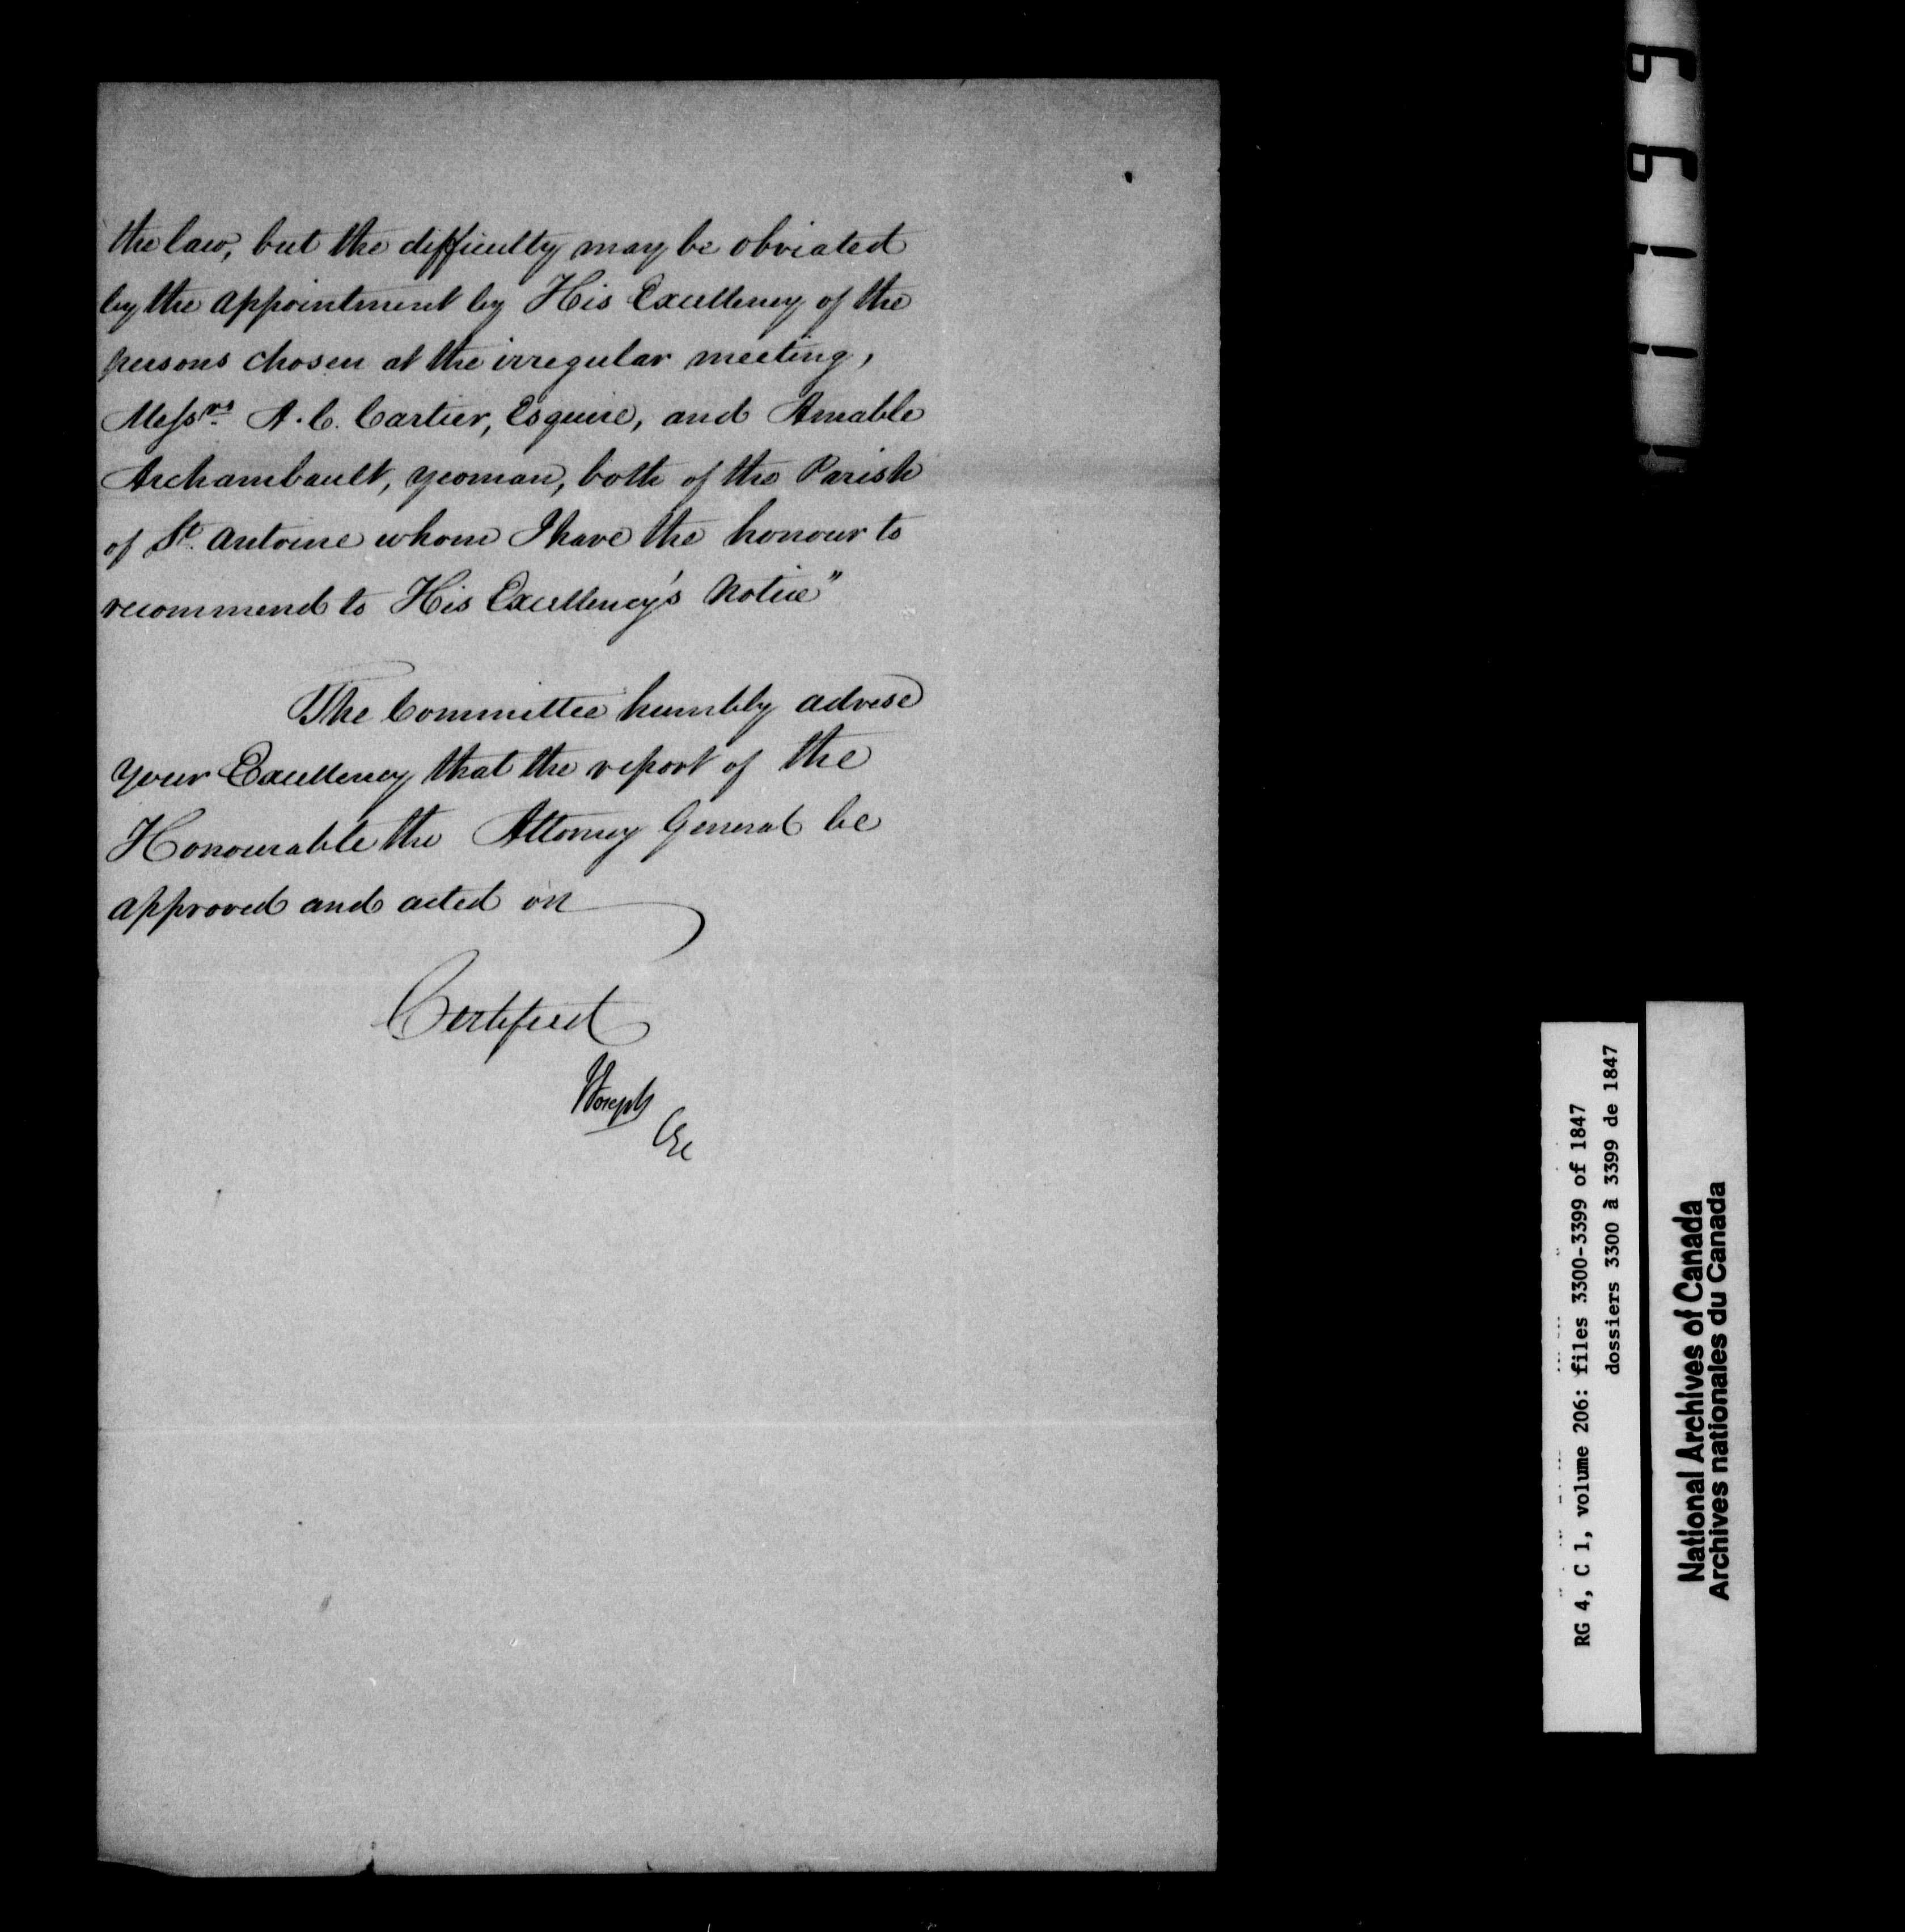 the law, but the difficulty may be obviated
by the appointment by His Excellency of the
persons chosen at the irregular meeting,
Messrs. A. C. Cartier, Esquire, and Amable
Archambault, yeoman, both of the Parish
of St. Antoine whom I have the honour to
recommend to His Excellency's Notice"
The Committee humbly advise
Your Excellency that the report of the
Honourable the Attorney General be
approved and acted on
Certified
RG 4, C 1, volume 206: files 3300-3399 of 1847
dossiers 3300 à 3399 de 1847
National Archives of Canada
Archives nationales du Canada